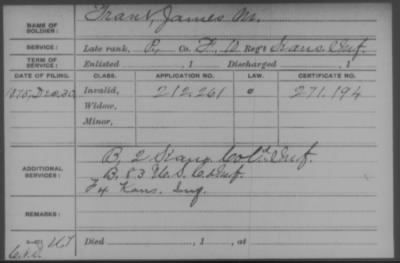 NAME OF SOLDIER: Grant, James M.
SERVICE: Late rank, P, Co. F, 10 Reg't Kans. Inf.
TERM OF SERVICE: Enlisted , 1 Discharged , 1
DATE OF FILING. CLASS. APPLICATION NO. LAW. CERTIFICATE NO.
Invalid, 212.261 271.194
Widow,
Minor,
ADDITIONAL SERVICES: B, 2 Kans. Col'd Inf.
B. 83 U. S. C. Inf.
F 4 Kans. Inf.
REMARKS:
Died , 1 , at